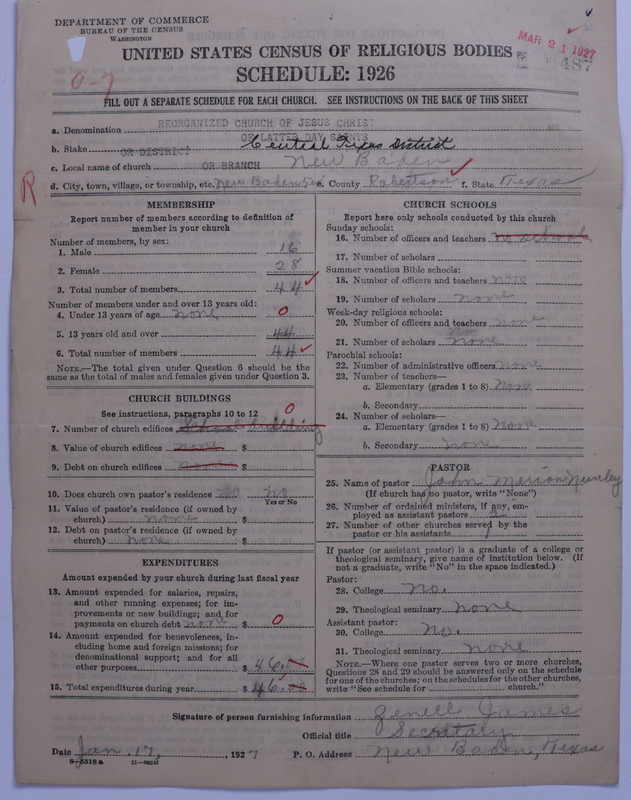 DEPARTMENT OF COMMERCE
BUREAU OF THE CENSUS
WASHINGTON
MAR 21 1927
487
UNITED STATES CENSUS OF RELIGIOUS BODIES
SCHEDULE: 1926
FILL OUT A SEPARATE SCHEDULE FOR EACH CHURCH. SEE INSTRUCTIONS ON THE BACK OF THIS SHEET
a. Denomination REORGANIZED CHURCH OF JESUS CHRIST
OF LATTER DAY SAINTS
b. Stake OR DISTRICT Central Texas District
c. Local name of church OR BRANCH New Baden
d. City, town, village, or township, etc. New Baden Tex e. County Robertson f. State Texas
R
MEMBERSHIP
Report number of members according to definition of
member in your church
Number of members, by sex:
1. Male 16
2. Female 28
3. Total number of members 44
Number of members under and over 13 years old:
4. Under 13 years of age none 0
5. 13 years old and over 44
6. Total number of members 44
NOTE.—The total given under Question 6 should be the
same as the total of males and females given under Question 3.
CHURCH BUILDINGS
See instructions, paragraphs 10 to 12 0
7. Number of church edifices School building
8. Value of church edifices none $
9. Debt on church edifices none $
10. Does church own pastor's residence no no
Yes or No
11. Value of pastor's residence (if owned by
church) none $
12. Debt on pastor's residence (if owned by
church) none $
EXPENDITURES
Amount expended by your church during last fiscal year
13. Amount expended for salaries, repairs,
and other running expenses; for im-
provements or new buildings; and for
payments on church debt none $ 0
14. Amount expended for benevolences, in-
cluding home and foreign missions; for
denominational support; and for all
other purposes $ 46.00
15. Total expenditures during year $ 46.00
CHURCH SCHOOLS
Report here only schools conducted by this church
Sunday schools:
16. Number of officers and teachers no school
17. Number of scholars
Summer vacation Bible schools:
18. Number of officers and teachers none
19. Number of scholars none
Week-day religious schools:
20. Number of officers and teachers none
21. Number of scholars none
Parochial schools:
22. Number of administrative officers none
23. Number of teachers—
a. Elementary (grades 1 to 8) none
b. Secondary
24. Number of scholars—
a. Elementary (grades 1 to 8) none
b. Secondary none
PASTOR
25. Name of pastor John Merion Nunley
(If church has no pastor, write "None")
26. Number of ordained ministers, if any, em-
ployed as assistant pastors 2
27. Number of other churches served by the
pastor or his assistants
If pastor (or assistant pastor) is a graduate of a college or
theological seminary, give name of institution below. (If
not a graduate, write "No" in the space indicated.)
Pastor:
28. College no.
29. Theological seminary none
Assistant pastor:
30. College no.
31. Theological seminary none
NOTE.—Where one pastor serves two or more churches,
Questions 28 and 29 should be answered only on the schedule
for one of the churches; on the schedules for the other churches,
write "See schedule for church."
Signature of person furnishing information Zenell James
Official title Secretary
Date Jan. 17, 1927 P. O. Address New Baden, Texas
8-5518 a 11-9051